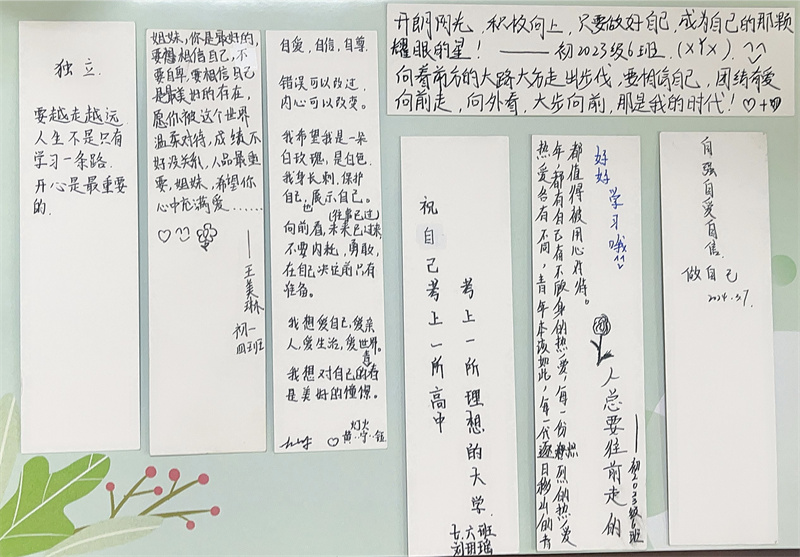 独立.
要越走越远
人生不是只有
学习一条路.
开心是最重要
的.
姐妹,你是最好的,
要相信自己,不
要自卑,要相信自己
是最美好的存在,
愿你被这个世界
温柔对待,成绩不
好没关系,人品最重
要,姐妹,希望你
心中充满爱……
——王美琳
初一
四班
自爱,自信,自尊.
错误可以改过,
内心可以改变。
我希望我是一朵
白玫瑰,是白色.
我身长刺.保护
自己,展示自己。
也
(往事已过)
向前看,未来已过来,
不要内耗,勇敢,
在自己决定前只有
准备。
我想爱自己,爱亲
人,爱生活,爱世界。
我想对自己的青春
是美好的憧憬。
灯火
开朗阳光,积极向上,只要做好自己,成为自己的那颗
耀眼的星! ——初2023级6班.(XYX)
向着前方的大路大方走出步伐,要相信自己,团结有爱
向前走,向外看,大步向前,那是我的时代!
祝自己考上一所高中
考上一所理想的大学.
七.六班
好好学习哦
都值得被用心对待。
年,都有自己有不顾一身的热爱,每一份炽烈的热爱
热爱各有不同,青年本该如此,每一个逐日移山的青
人总要往前走的
——初2023级6班
自强自爱自信.
做自己
2024.3.7.